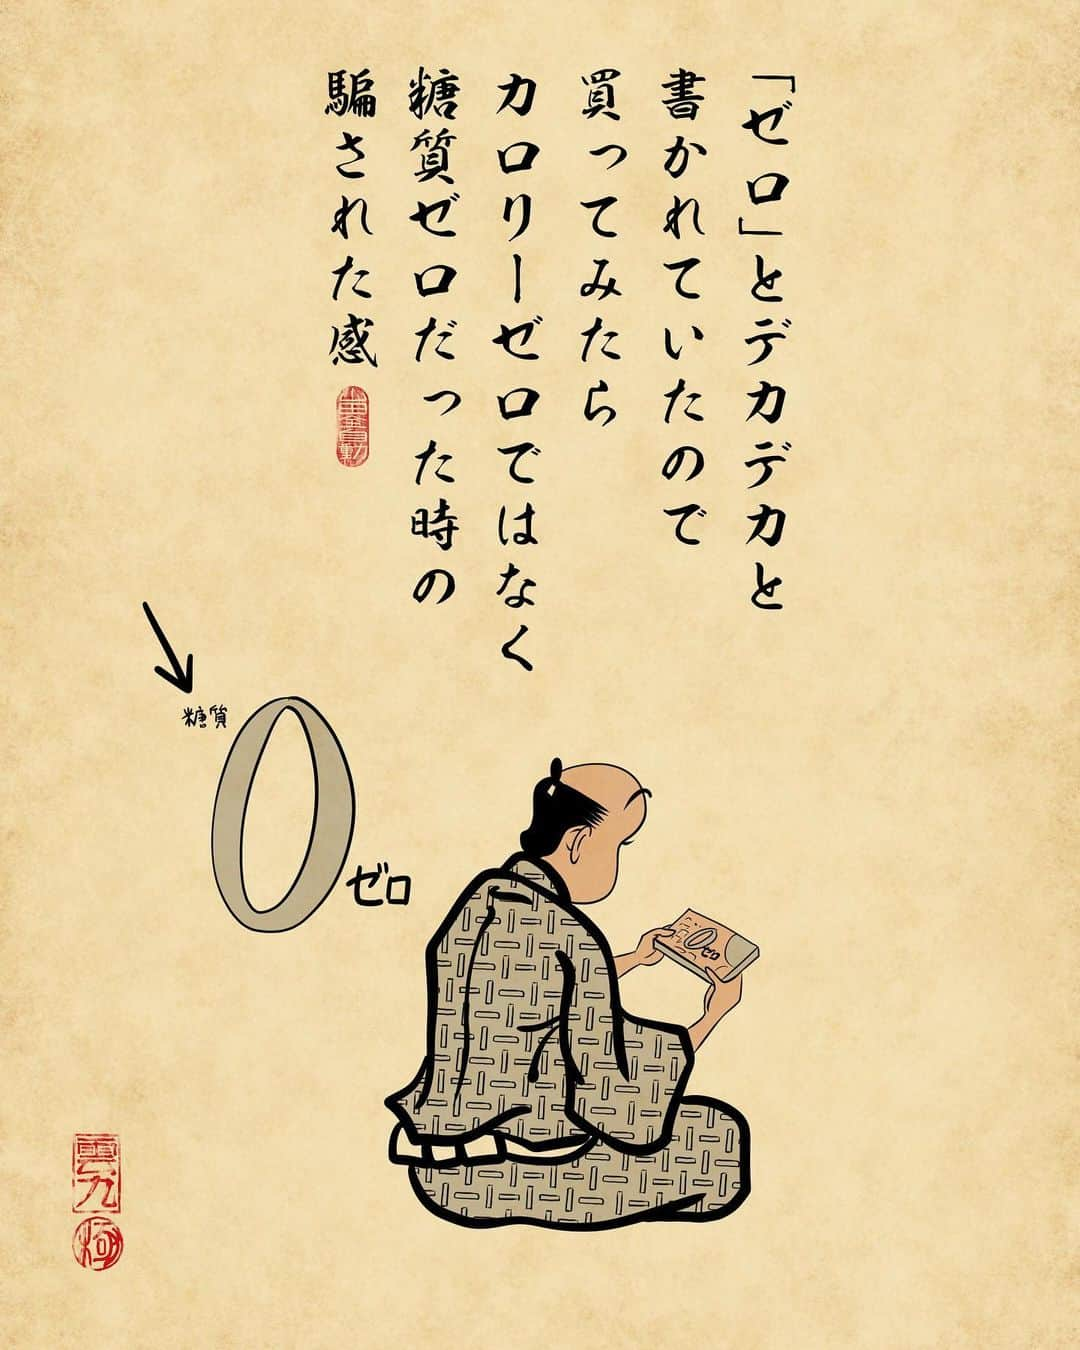 「ゼロ」とデカデカと
書かれていたので
買ってみたら
カロリーゼロではなく
糖質ゼロだった時の
騙された感
糖質
0ゼロ
0ゼロ